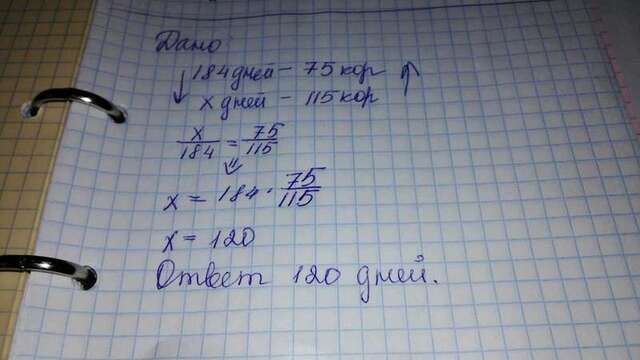 Дано
↓ 184 дней – 75 кор ↑
х дней – 115 кор
х/184 = 75/115
⇓
х = 184 · 75/115
х = 120
Ответ 120 дней.